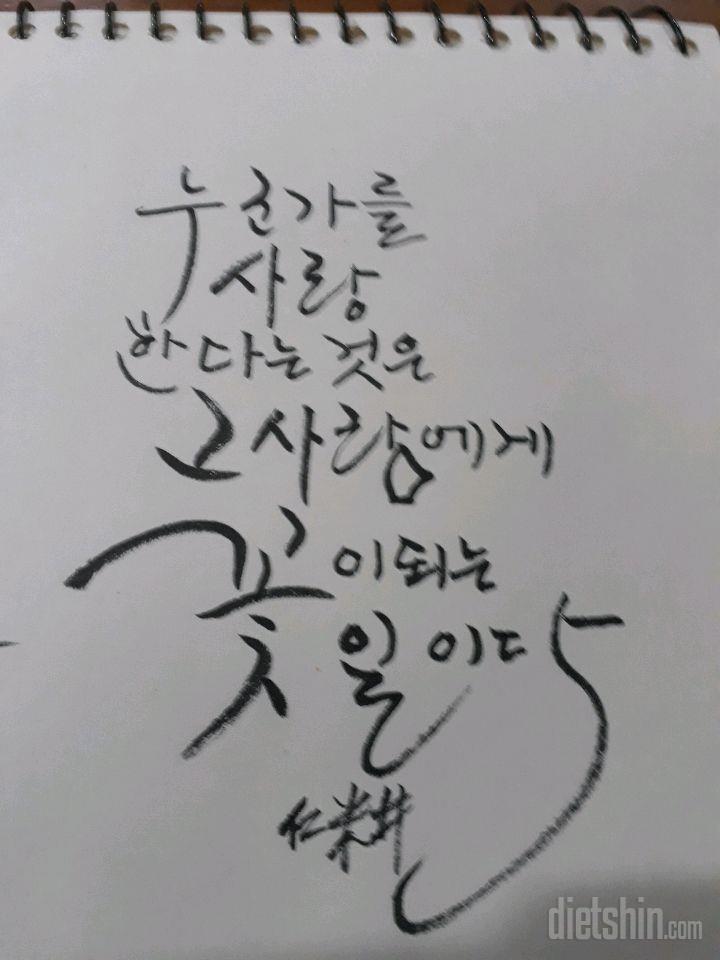 누군가를
사랑
한다는 것은
그 사람에게
꽃이 되는
일이다
dietshin.com